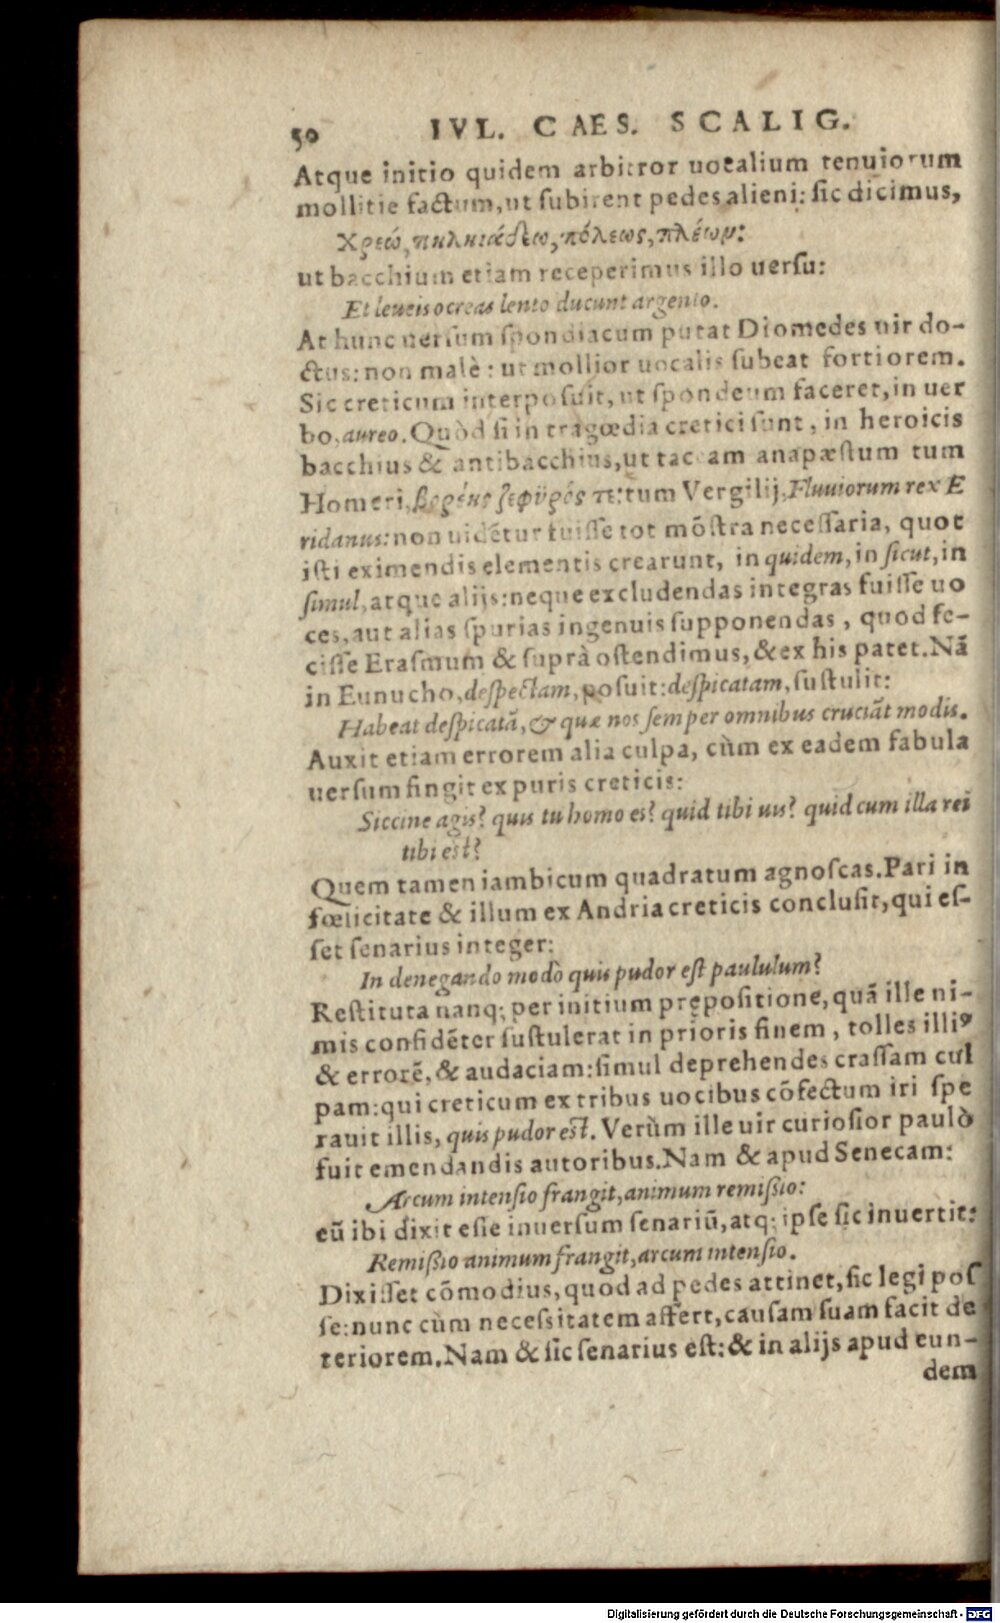 50 IVL. CAES. SCALIG.
Atque initio quidem arbitror uocalium tenuiorum
mollitie factum,ut ſubirent pedes alieni: ſic dicimus,
Χρεώ, πηληϊάδεω, πόλεως, πλέων:
ut bacchium etiam receperimus illo uerſu:
Et leueis ocreas lento ducunt argento.
At hunc uerſum ſpondiacum putat Diomedes uir do-
ctus: non malè: ut mollior uocalis ſubeat fortiorem.
Sic creticum interpoſuit, ut ſpondeum faceret, in uer
bo, aureo. Quòd ſi in tragœdia cretici ſunt, in heroicis
bacchius & antibacchius, ut taceam anapæſtum tum
Homeri, βορέης ζεφϋρός τε: tum Vergilij, Fluuiorum rex E
ridanus: non uidẽtur fuiſſe tot mõſtra neceſſaria, quot
iſti eximendis elementis crearunt, in quidem, in ſicut, in
ſimul, atque alijs: neque excludendas integras fuiſſe uo
ces, aut alias ſpurias ingenuis ſupponendas, quod fe-
ciſſe Eraſmum & ſuprà oſtendimus, & ex his patet. Nã
in Eunucho, deſpectam, poſuit: deſpicatam, ſuſtulit:
Habeat deſpicatã, & quæ nos ſemper omnibus cruciãt modis.
Auxit etiam errorem alia culpa, cùm ex eadem fabula
uerſum fingit ex puris creticis:
Siccine agis? quis tu homo es? quid tibi uis? quid cum illa rei
tibi eſt?
Quem tamen iambicum quadratum agnoſcas. Pari in
fœlicitate & illum ex Andria creticis concluſit, qui eſ-
ſet ſenarius integer:
In denegando modò quis pudor eſt paululum?
Reſtituta nanq; per initium prępoſitione, quã ille ni-
mis confidẽter ſuſtulerat in prioris finem, tolles illiꝰ
& errorẽ, & audaciam: ſimul deprehendes craſſam cul
pam: qui creticum ex tribus uocibus cõfectum iri ſpe
rauit illis, quis pudor eſt. Verùm ille uir curioſior paulò
fuit emendandis autoribus. Nam & apud Senecam:
Arcum intenſio frangit, animum remiſsio:
eũ ibi dixit eſſe inuerſum ſenariũ, atq; ipſe ſic inuertit:
Remiſsio animum frangit, arcum intenſio.
Dixiſſet cõmodius, quod ad pedes attinet, ſic legi poſ
ſe: nunc cùm neceſsitatem affert, cauſam ſuam facit de
teriorem. Nam & ſic ſenarius eſt: & in alijs apud eun-
dem
Digitalisierung gefördert durch die Deutsche Forschungsgemeinschaft - DFG